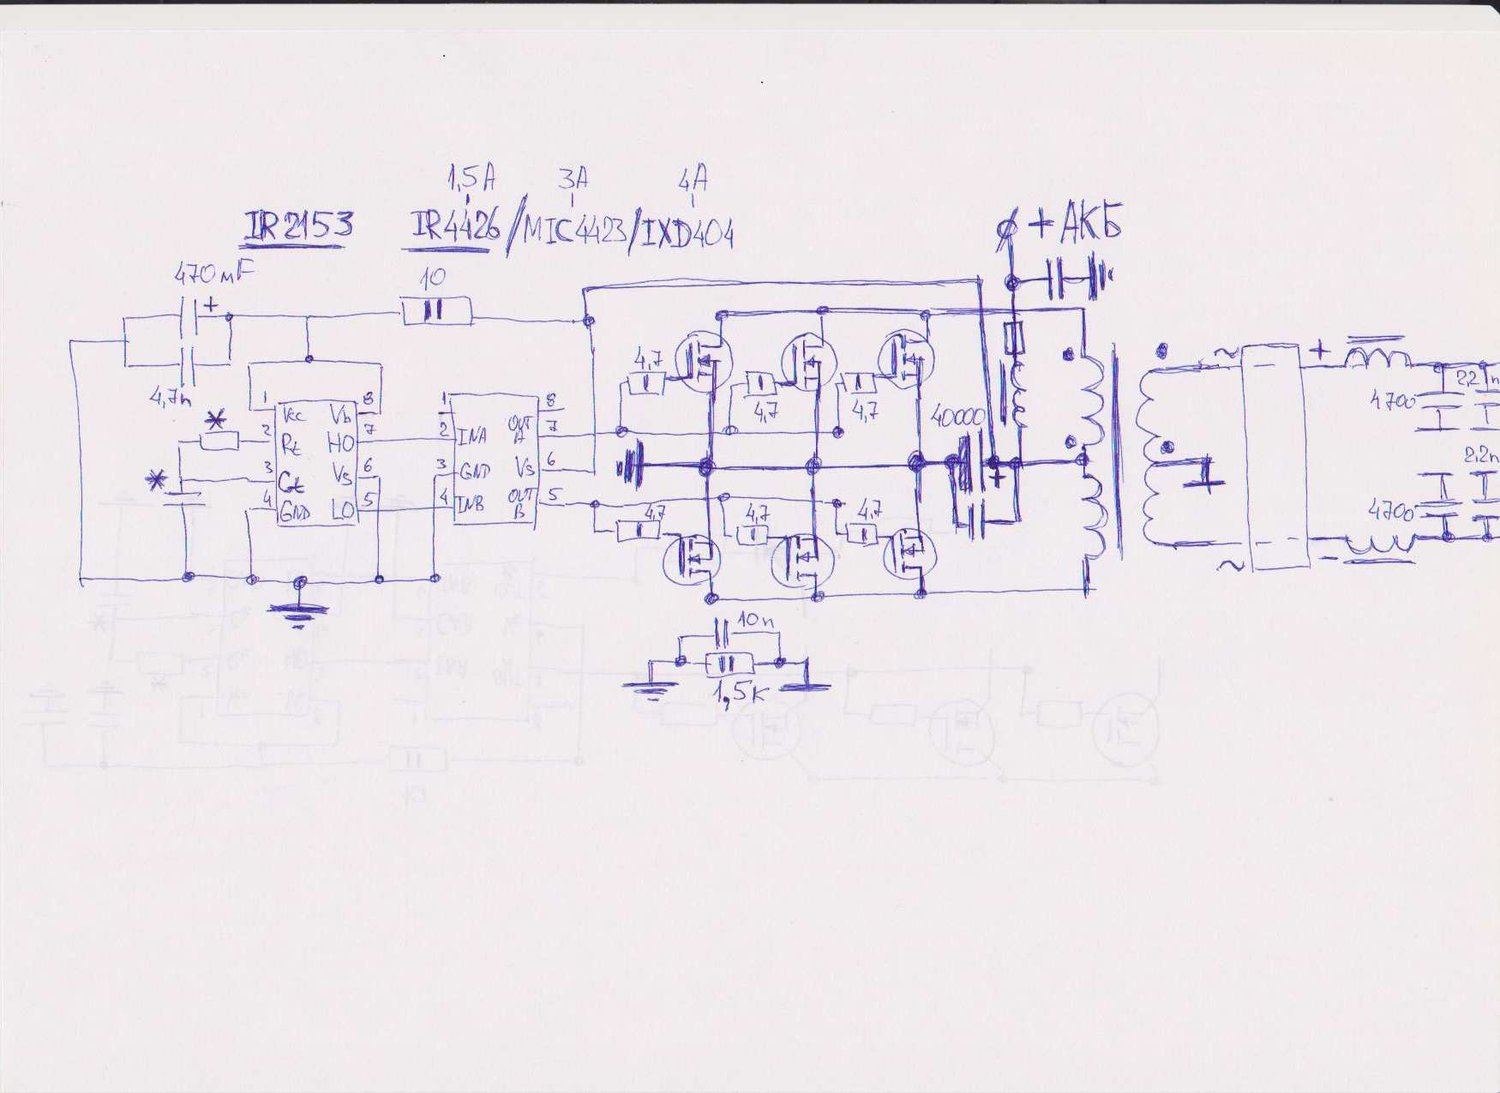 1,5A 3A 4A
IR2153 IR4426/MIC4423/IXD404
+АКБ
470мF
+
10
4,7n
*
*
1 Vcc Vb 8
2 Rt HO 7
3 Ct Vs 6
4 GND LO 5
1 8
2 INA OUT A 7
3 GND Vs 6
4 INB OUT B 5
4,7 4,7 4,7
4,7 4,7 4,7
40000
+
10n
1,5к
~ +
~ −
4700 2,2n
4700 2,2n